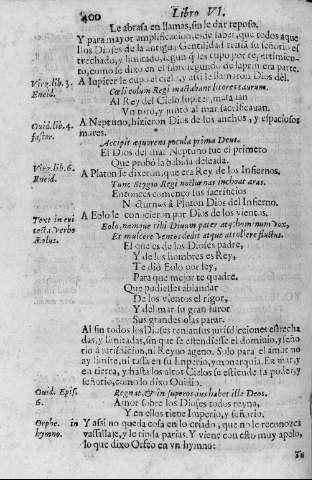 400
Libro VI.
Le abrasa en llamas, sin le dar reposo.
Y para mayor amplificacion, es de saber, que todos aque
llos Dioses de la antigua Gentilidad tenia su señorio es
trechado, y limitado, segun que les cupo por
to, como le dixo en el libro segundo de la primera parte.
A Iupiter le cupo el cielo, y assi le llamaron Dios del.
Virg. lib. 3.
Eneid.
Cœli colum Regi mactabant in littore taurum.
Al Rey del Cielo Iupiter, matauan
Vn toro, y junto al mar sacrificauan.
Ouid. lib. 4.
fastor.
A Neptuno, hizieron Dios de los anchos, y espaciosos
mares.
Accipit æquoreus pocula prima Deus.
El Dios del mar Neptuno fue el primero
Que probò la bebida deleada.
Virg. lib. 6.
Eneid.
A Platon le dizeron, que era Rey de los Infiernos.
Tunc Stygio Regi nocturnas inchoat aras.
Entonces començo sus sacrificios
Nocturnos à Platon Dios del Infierno.
Text. in epi
teta. verbo
Æolus.
A Eolo le conocieron por Dios de los vientos.
Eolo, namque tibi Diuum pater atque hominum rex,
Et mulcere
El que es de los Dioses padre,
Y de los hombres es Rey,
Te diò Eolo por ley,
Para que mejor te quadre.
Que pudiesses ablandar
De los vientos el rigor,
Y del mar su gran furor
Sus grandes olas parar.
Assi son todos los Dioses tenian sus jurisdiciones estrecha
das, y limitadas, sin que se estendiesse el dominio, y seño
rio à jurisdicion, ni Reyno ageno. Solo para el amor no
ay limite, ni tassa en su Imperio, y monarquia. En mar, y
en tierra, y hasta los altos Cielos se estiende su poder, y
señorio, como lo dixo Ouidio.
Ouid. Epis.
6.
Regnat, & in superos ius habet ille Deos.
Amor sobre los Dioses todos reyna,
Y en ellos tiene Imperio, y señorio.
Orphe. in
hymno.
Y assi no queda cosa en lo criado, que no le reconozca
vassallaje, y le rinda parias. Y viene con esto muy apelo,
lo que dixo Orfeo en vn hymno: